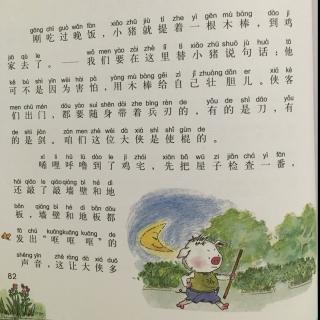 gāng chī guò wǎn fàn xiǎo zhū jiù tí zhe yì gēn mù bàng dào jī
刚吃过晚饭，小猪就提着一根木棒，到鸡
jiā qù le wǒ men yào zài zhè lǐ tì xiǎo zhū shuō jù huà tā
家去了。——我们要在这里替小猪说句话：他
kě bú shì yīn wèi hài pà yòng mù bàng gěi zì jǐ zhuàng dǎn er xiá kè
可不是因为害怕，用木棒给自己壮胆儿。侠客
men chū mén dōu yào suí shēn dài zhe bīng rèn de yǒu de shì dāo yǒu
们出门，都要随身带着兵刃的。有的是刀，有
de shì jiàn zán men zhè wèi dà xiá shì shǐ gùn de
的是剑。咱们这位大侠是使棍的。
xī li hū lū dào le jī zhái xiān bǎ wū zi jiǎn chá yì fān
唏哩呼噜到了鸡宅，先把屋子检查一番，
hái qiāo le qiāo qiáng bì hé dì
还敲了敲墙壁和地
bǎn qiáng bì hé dì bǎn dōu
板，墙壁和地板都
fā chū kuāng kuāng kuāng de
发出“哐哐哐”的
shēng yīn zhè ràng dà xiá duō
声音，这让大侠多
82